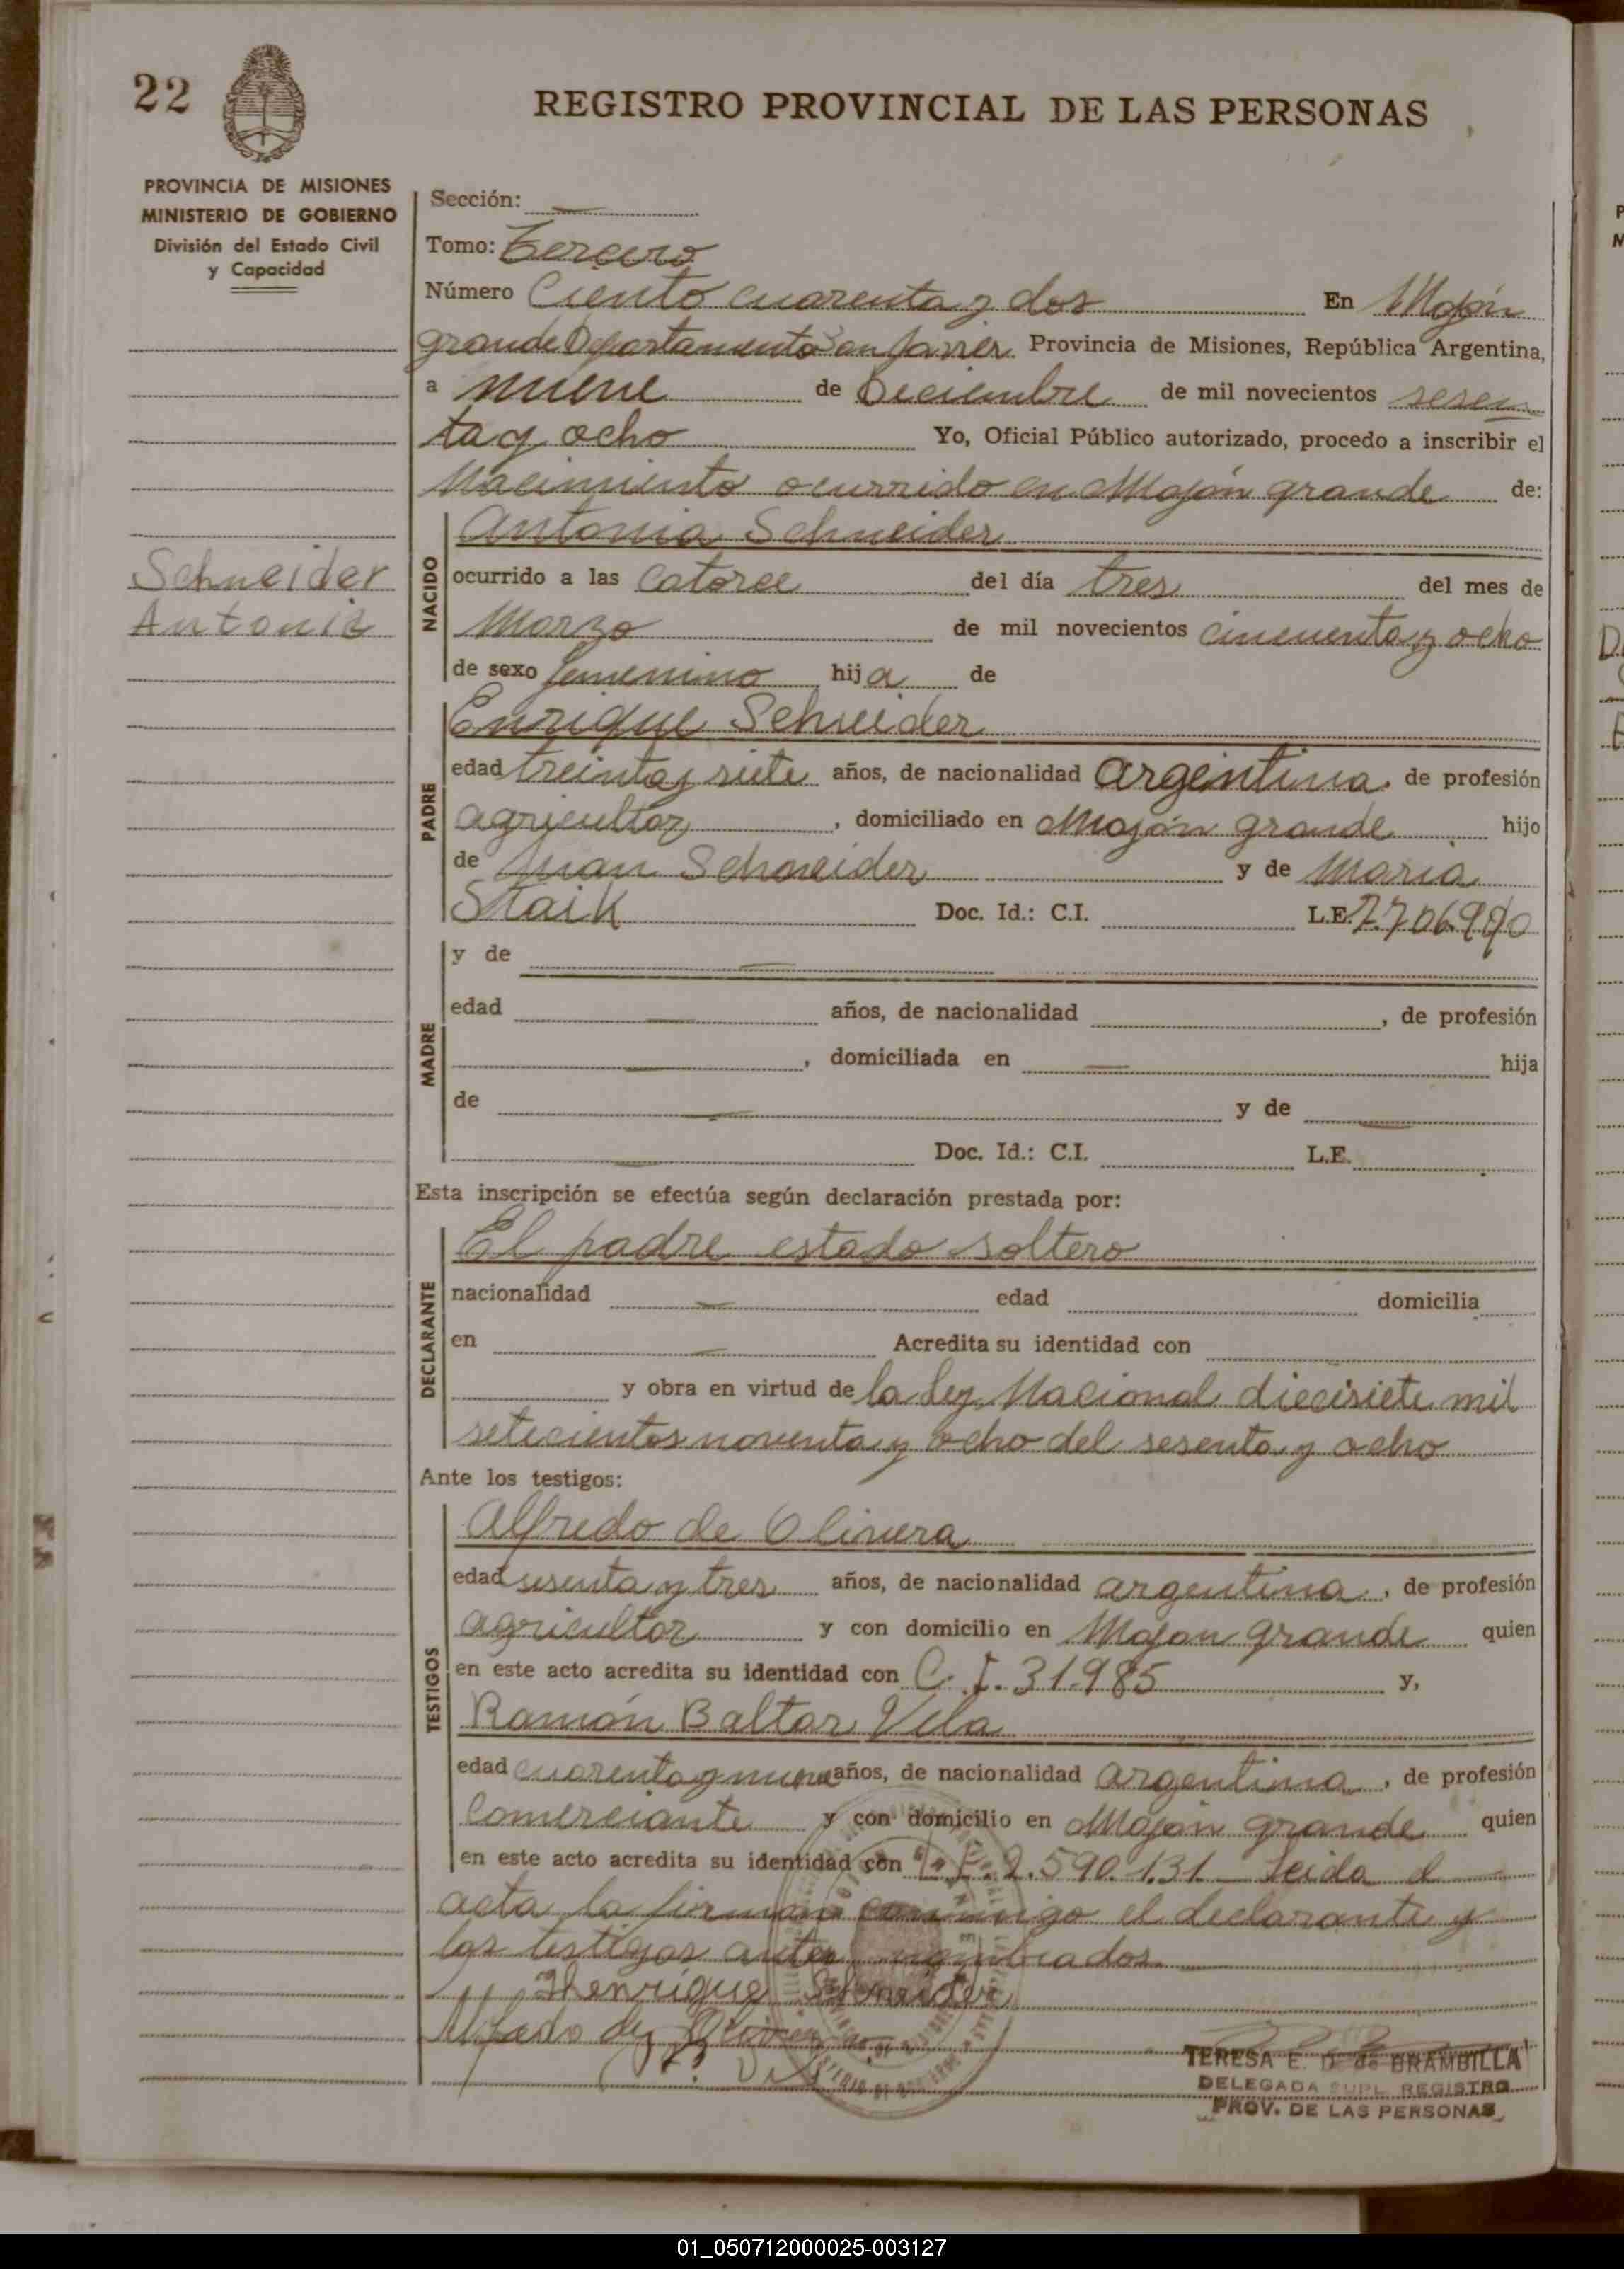 22
REGISTRO PROVINCIAL DE LAS PERSONAS
PROVINCIA DE MISIONES
MINISTERIO DE GOBIERNO
División del Estado Civil
y Capacidad
Schneider
Antonia
Sección:
Tomo: Tercero
Número Ciento cuarenta y dos En Mojón
grande Departamento San Javier Provincia de Misiones, República Argentina,
a nueve de Deciembre de mil novecientos sesen
ta y ocho Yo, Oficial Público autorizado, procedo a inscribir el
Nacimiento ocurrido en Mojón grande de:
NACIDO
Antonia Schneider
ocurrido a las Catorce del día tres del mes de
Marzo de mil novecientos cincuenta y ocho
de sexo femenino hija de
PADRE
Enrique Schneider
edad treinta y siete años, de nacionalidad argentina, de profesión
agricultor, domiciliado en Mojón grande hijo
de Juan Schneider y de Maria
Staik Doc. Id.: C.I. L.E.
MADRE
y de
edad años, de nacionalidad , de profesión
, domiciliada en hija
de y de
Doc. Id.: C.I. L.E.
Esta inscripción se efectúa según declaración prestada por:
DECLARANTE
El padre estado soltero
nacionalidad edad domicilia
en Acredita su identidad con
y obra en virtud de la Ley Nacional diecisiete mil
setecientos noventa y ocho del sesenta y ocho
Ante los testigos:
TESTIGOS
Alfredo de Olivera
edad sesenta y tres años, de nacionalidad argentina, de profesión
agricultor y con domicilio en Mojon grande quien
en este acto acredita su identidad con C. I. 31.985 y,
Ramón Baltar Vela
edad cuarenta y nueve años, de nacionalidad argentina, de profesión
Comerciante y con domicilio en Mojón grande quien
en este acto acredita su identidad con L. E. 2.590.131 Leida el
acta la firman conmigo el declarante y
los testigos antes nombrados.
Henrique Schneider
TERESA E. D. de BRAMBILLA
DELEGADA SUPL. REGISTRO
PROV. DE LAS PERSONAS
01_050712000025-003127